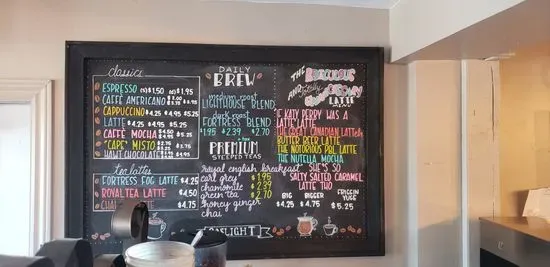 classics
ESPRESSO (S) $1.50 (D) $1.95
CAFFÈ AMERICANO $2.00
CAPPUCCINO $4.25 $4.95 $5.25
LATTE $4.25 $4.95 $5.25
CAFFÈ MOCHA $4.50
"CAPE" MISTO $2.75
HAWT CHOCOLATE
tea lattes
FORTRESS FOG LATTE $4.25
ROYALTEA LATTE $4.50
CHAI $4.75
DAILY
BREW
medium roast
LIGHTHOUSE BLEND
dark roast
FORTRESS BLEND
$1.95 $2.39 $2.70
+ tax
PREMIUM
STEEPED TEAS
royal english breakfast
earl grey $1.95
chamomile $2.39
green tea $2.70
honey ginger
chai
GASLIGHT
THE
AND
LATTE
IF KATY PERRY WAS A
LATTE LATTE
THE GREAT CANADIAN LATTEeh
BUTTER BEER LATTE
THE NOTORIOUS PBL LATTE
THE NUTELLA MOCHA
SHE'S SO
SALTY SALTED CARAMEL
LATTE THO
BIG BIGGER FRIGGIN YUGE
$4.25 $4.75 $5.25